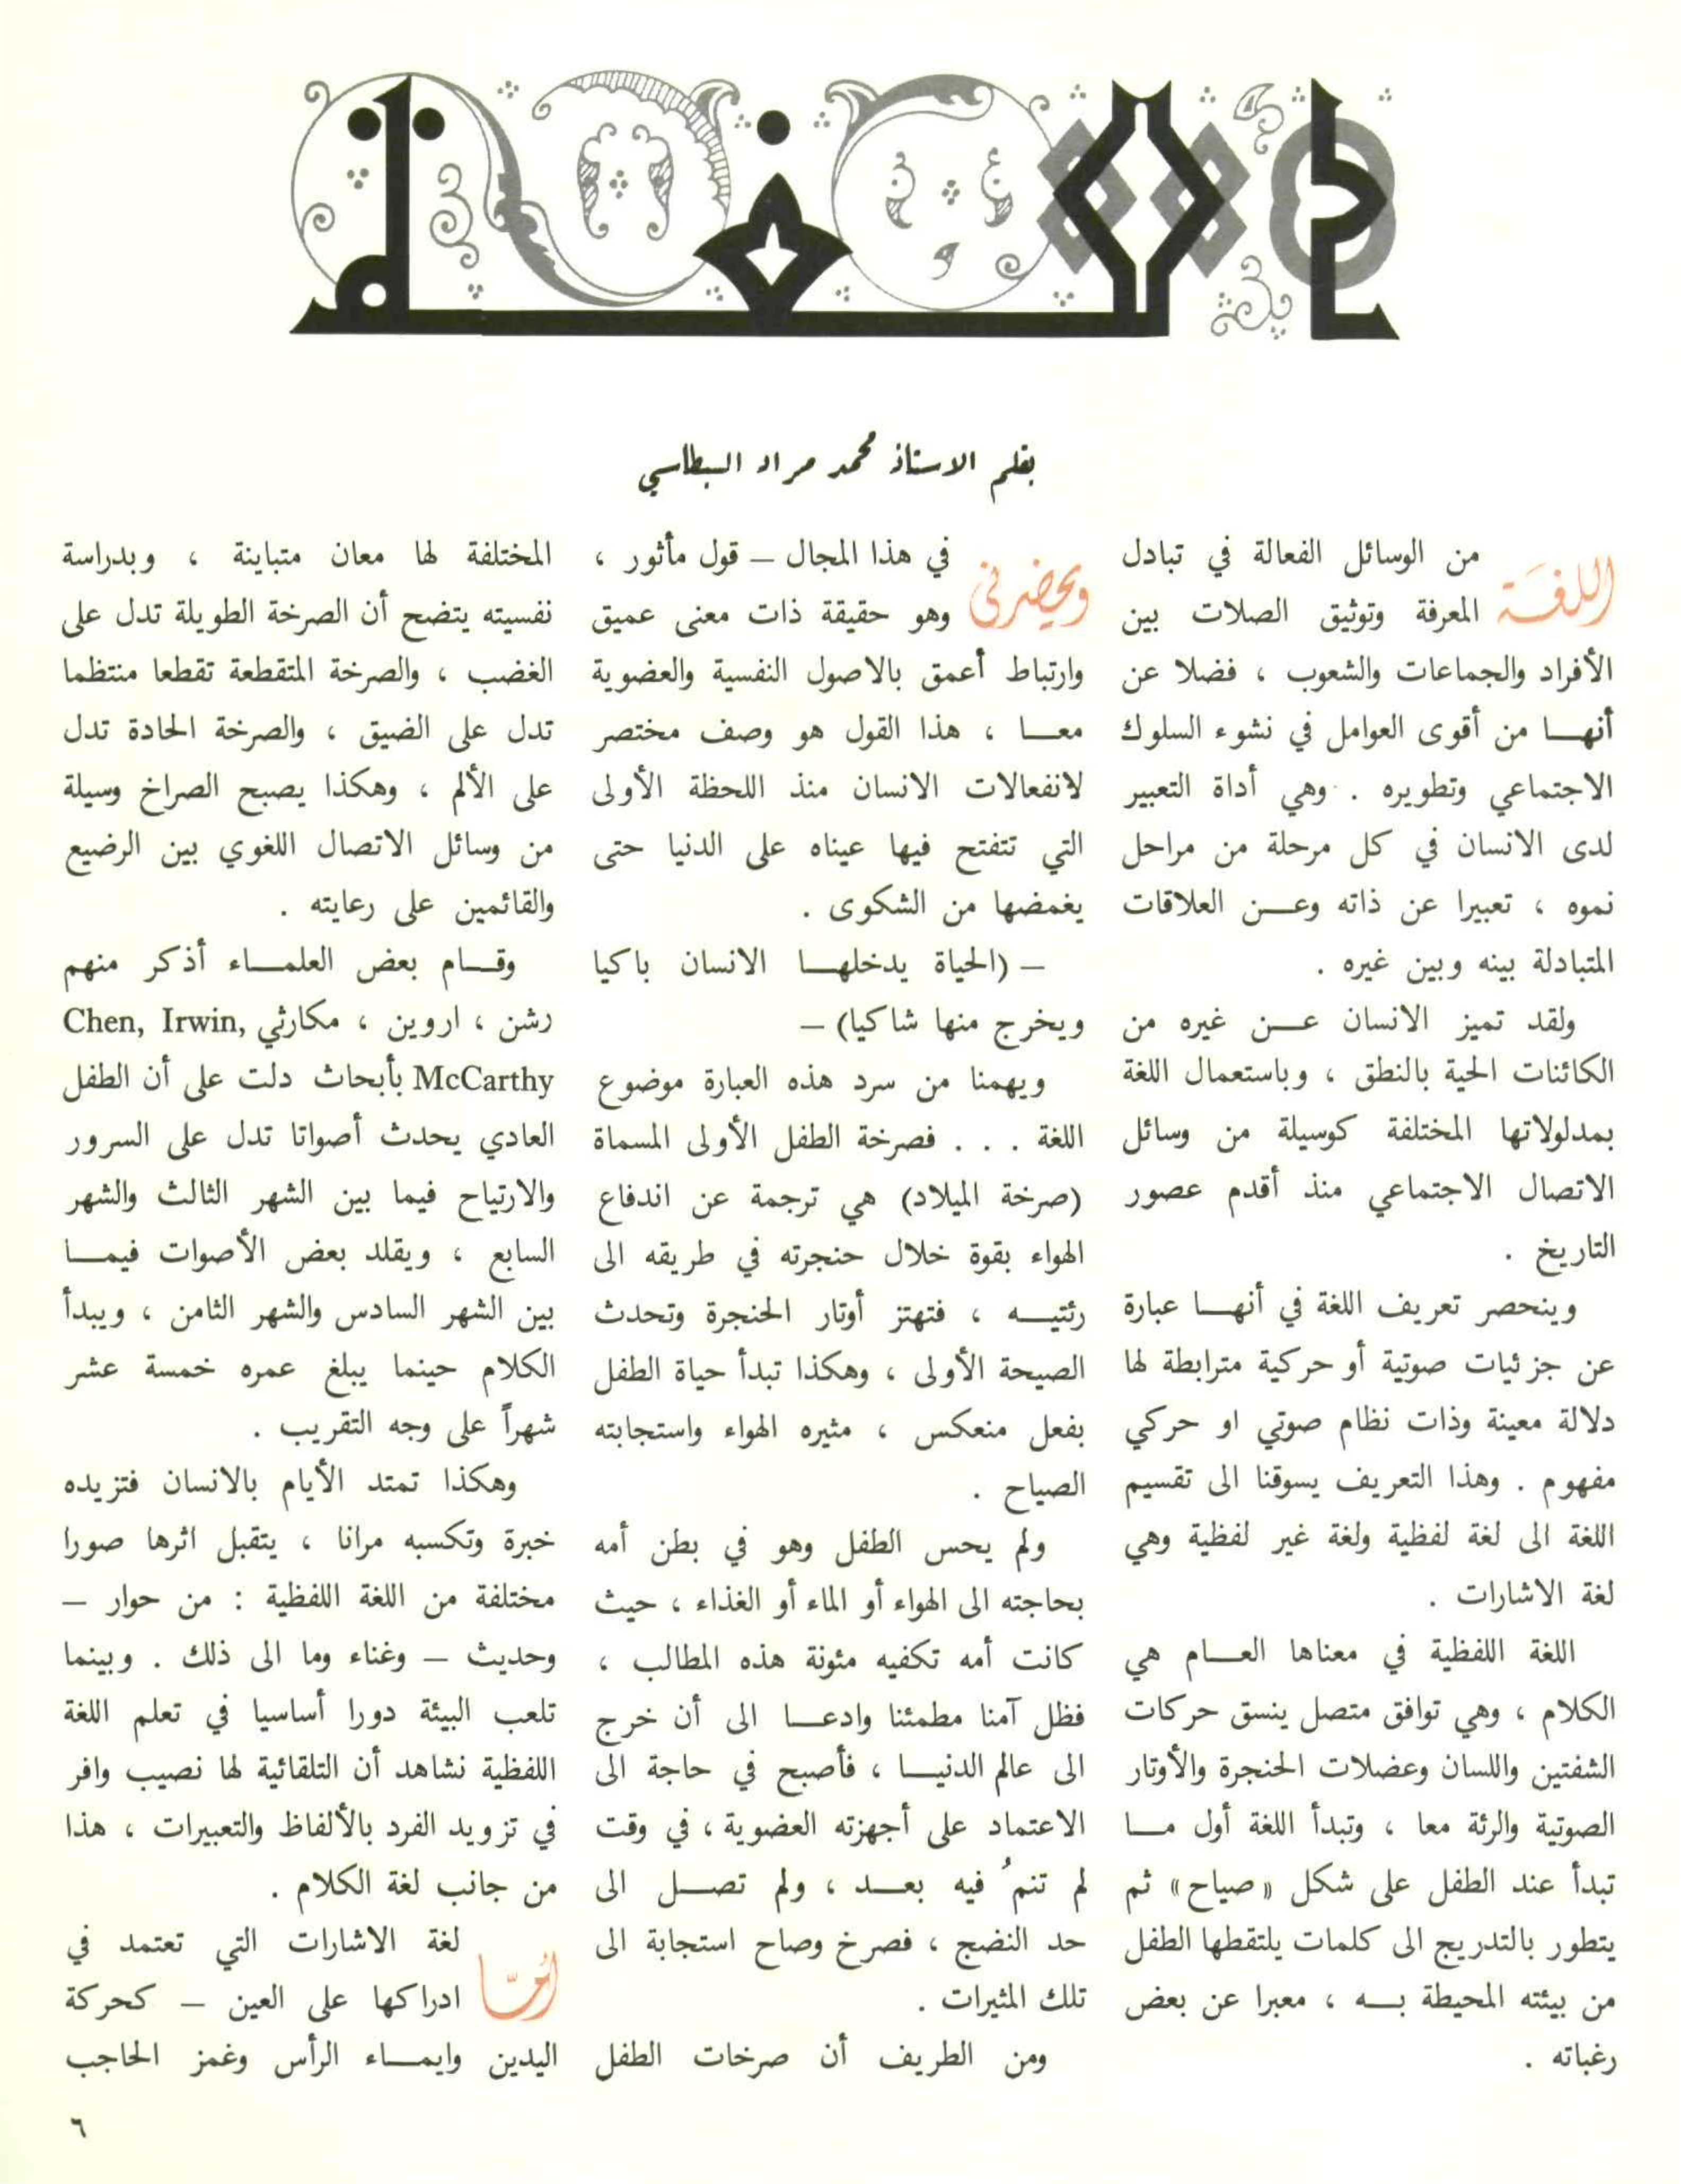 اللغة
بقلم الاستاذ محمد مراد السبطاسي
اللغة من الوسائل الفعالة في تبادل
المعرفة وتوثيق الصلات بين
الأفراد والجماعات والشعوب ، فضلا عن
أنها من أقوى العوامل في نشوء السلوك
الاجتماعي وتطويره . وهي أداة التعبير
لدى الانسان في كل مرحلة من مراحل
نموه ، تعبيرا عن ذاته وعن العلاقات
المتبادلة بينه وبين غيره .
ولقد تميز الانسان عن غيره من
الكائنات الحية بالنطق ، وباستعمال اللغة
بمدلولاتها المختلفة كوسيلة من وسائل
الاتصال الاجتماعي منذ أقدم عصور
التاريخ .
وينحصر تعريف اللغة في أنها عبارة
عن جزئيات صوتية أو حركية مترابطة لها
دلالة معينة وذات نظام صوتي او حركي
مفهوم . وهذا التعريف يسوقنا الى تقسيم
اللغة الى لغة لفظية ولغة غير لفظية وهي
لغة الاشارات .
اللغة اللفظية في معناها العام هي
الكلام ، وهي توافق متصل ينسق حركات
الشفتين واللسان وعضلات الحنجرة والأوتار
الصوتية والرئة معا ، وتبدأ اللغة أول ما
تبدأ عند الطفل على شكل « صياح » ثم
يتطور بالتدريج الى كلمات يلتقطها الطفل
من بيئته المحيطة به ، معبرا عن بعض
رغباته .
ويحضرني في هذا المجال – قول مأثور ،
وهو حقيقة ذات معنى عميق
وارتباط أعمق بالاصول النفسية والعضوية
معا ، هذا القول هو وصف مختصر
لانفعالات الانسان منذ اللحظة الأولى
التي تتفتح فيها عيناه على الدنيا حتى
يغمضها من الشكوى .
– (الحياة يدخلها الانسان باكيا
ويخرج منها شاكيا) –
ويهمنا من سرد هذه العبارة موضوع
اللغة . . . فصرخة الطفل الأولى المسماة
(صرخة الميلاد) هي ترجمة عن اندفاع
الهواء بقوة خلال حنجرته في طريقه الى
رئتيه ، فتهتز أوتار الحنجرة وتحدث
الصيحة الأولى ، وهكذا تبدأ حياة الطفل
بفعل منعكس ، مثيره الهواء واستجابته
الصياح .
ولم يحس الطفل وهو في بطن أمه
بحاجته الى الهواء أو الماء أو الغذاء ، حيث
كانت أمه تكفيه مئونة هذه المطالب ،
فظل آمنا مطمئنا وادعا الى أن خرج
الى عالم الدنيا ، فأصبح في حاجة الى
الاعتماد على أجهزته العضوية ، في وقت
لم تنمُ فيه بعد ، ولم تصل الى
حد النضج ، فصرخ وصاح استجابة الى
تلك المثيرات .
ومن الطريف أن صرخات الطفل
المختلفة لها معان متباينة ، وبدراسة
نفسيته يتضح أن الصرخة الطويلة تدل على
الغضب ، والصرخة المتقطعة تقطعا منتظما
تدل على الضيق ، والصرخة الحادة تدل
على الألم ، وهكذا يصبح الصراخ وسيلة
من وسائل الاتصال اللغوي بين الرضيع
والقائمين على رعايته .
وقام بعض العلماء أذكر منهم
رشن ، اروين ، مكارثي Chen, Irwin,
McCarthy بأبحاث دلت على أن الطفل
العادي يحدث أصواتا تدل على السرور
والارتياح فيما بين الشهر الثالث والشهر
السابع ، ويقلد بعض الأصوات فيما
بين الشهر السادس والشهر الثامن ، ويبدأ
الكلام حينما يبلغ عمره خمسة عشر
شهراً على وجه التقريب .
وهكذا تمتد الأيام بالانسان فتزيده
خبرة وتكسبه مرانا ، يتقبل اثرها صورا
مختلفة من اللغة اللفظية : من حوار –
وحديث – وغناء وما الى ذلك . وبينما
تلعب البيئة دورا أساسيا في تعلم اللغة
اللفظية نشاهد أن التلقائية لها نصيب وافر
في تزويد الفرد بالألفاظ والتعبيرات ، هذا
من جانب لغة الكلام .
أمّا لغة الاشارات التي تعتمد في
ادراكها على العين – كحركة
اليدين وايماء الرأس وغمز الحاجب
٦